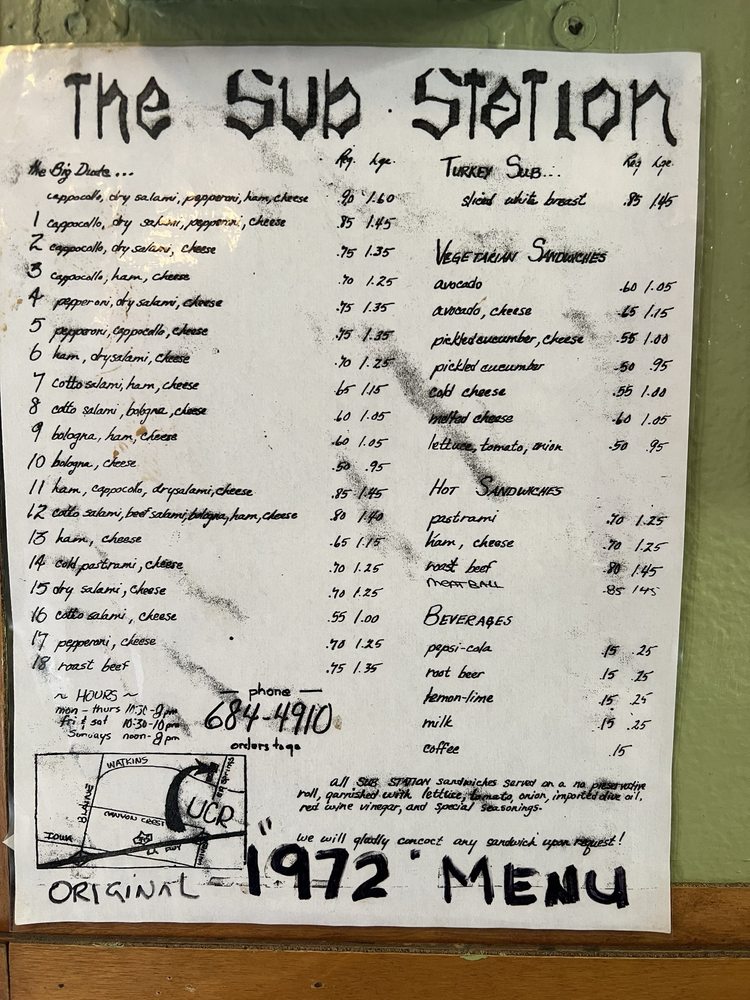 The Sub Station
the Big Dude... Reg. Lge.
cappocollo, dry salami, pepperoni, ham, cheese .90 1.60
1 cappocollo, dry salami, pepperoni, cheese .85 1.45
2 cappocollo, dry salami, cheese .75 1.35
3 cappocollo, ham, cheese .70 1.25
4 pepperoni, dry salami, cheese .75 1.35
5 pepperoni, cappocollo, cheese .75 1.35
6 ham, dry salami, cheese .70 1.25
7 cotto salami, ham, cheese .65 1.15
8 cotto salami, bologna, cheese .60 1.05
9 bologna, ham, cheese .60 1.05
10 bologna, cheese .50 .95
11 ham, cappocolo, dry salami, cheese .85 1.45
12 cotto salami, beef salami, bologna, ham, cheese .80 1.40
13 ham, cheese .65 1.15
14 cold pastrami, cheese .70 1.25
15 dry salami, cheese .70 1.25
16 cotto salami, cheese .55 1.00
17 pepperoni, cheese .70 1.25
18 roast beef .75 1.35
Turkey Sub... Reg Lge
sliced white breast .85 1.45
Vegetarian Sandwiches
avocado .60 1.05
avocado, cheese .65 1.15
pickled cucumber, cheese .55 1.00
pickled cucumber .50 .95
cold cheese .55 1.00
melted cheese .60 1.05
lettuce, tomato, onion .50 .95
Hot Sandwiches
pastrami .70 1.25
ham, cheese .70 1.25
roast beef .80 1.45
MEATBALL .85 1.45
Beverages
pepsi-cola .15 .25
root beer .15 .25
lemon-lime .15 .25
milk .15 .25
coffee .15
~ HOURS ~
mon - thurs 10:30-9 pm
fri & sat 10:30-10 pm
Sundays noon-8 pm
— phone —
684-4910
orders to go
WATKINS
CANYON CREST
IOWA
UCR
all SUB STATION sandwiches served on a no preservative
roll, garnished with lettuce, tomato, onion, imported olive oil,
red wine vinegar, and special seasonings.
we will gladly concoct any sandwich upon request!
ORIGINAL - "1972" MENU